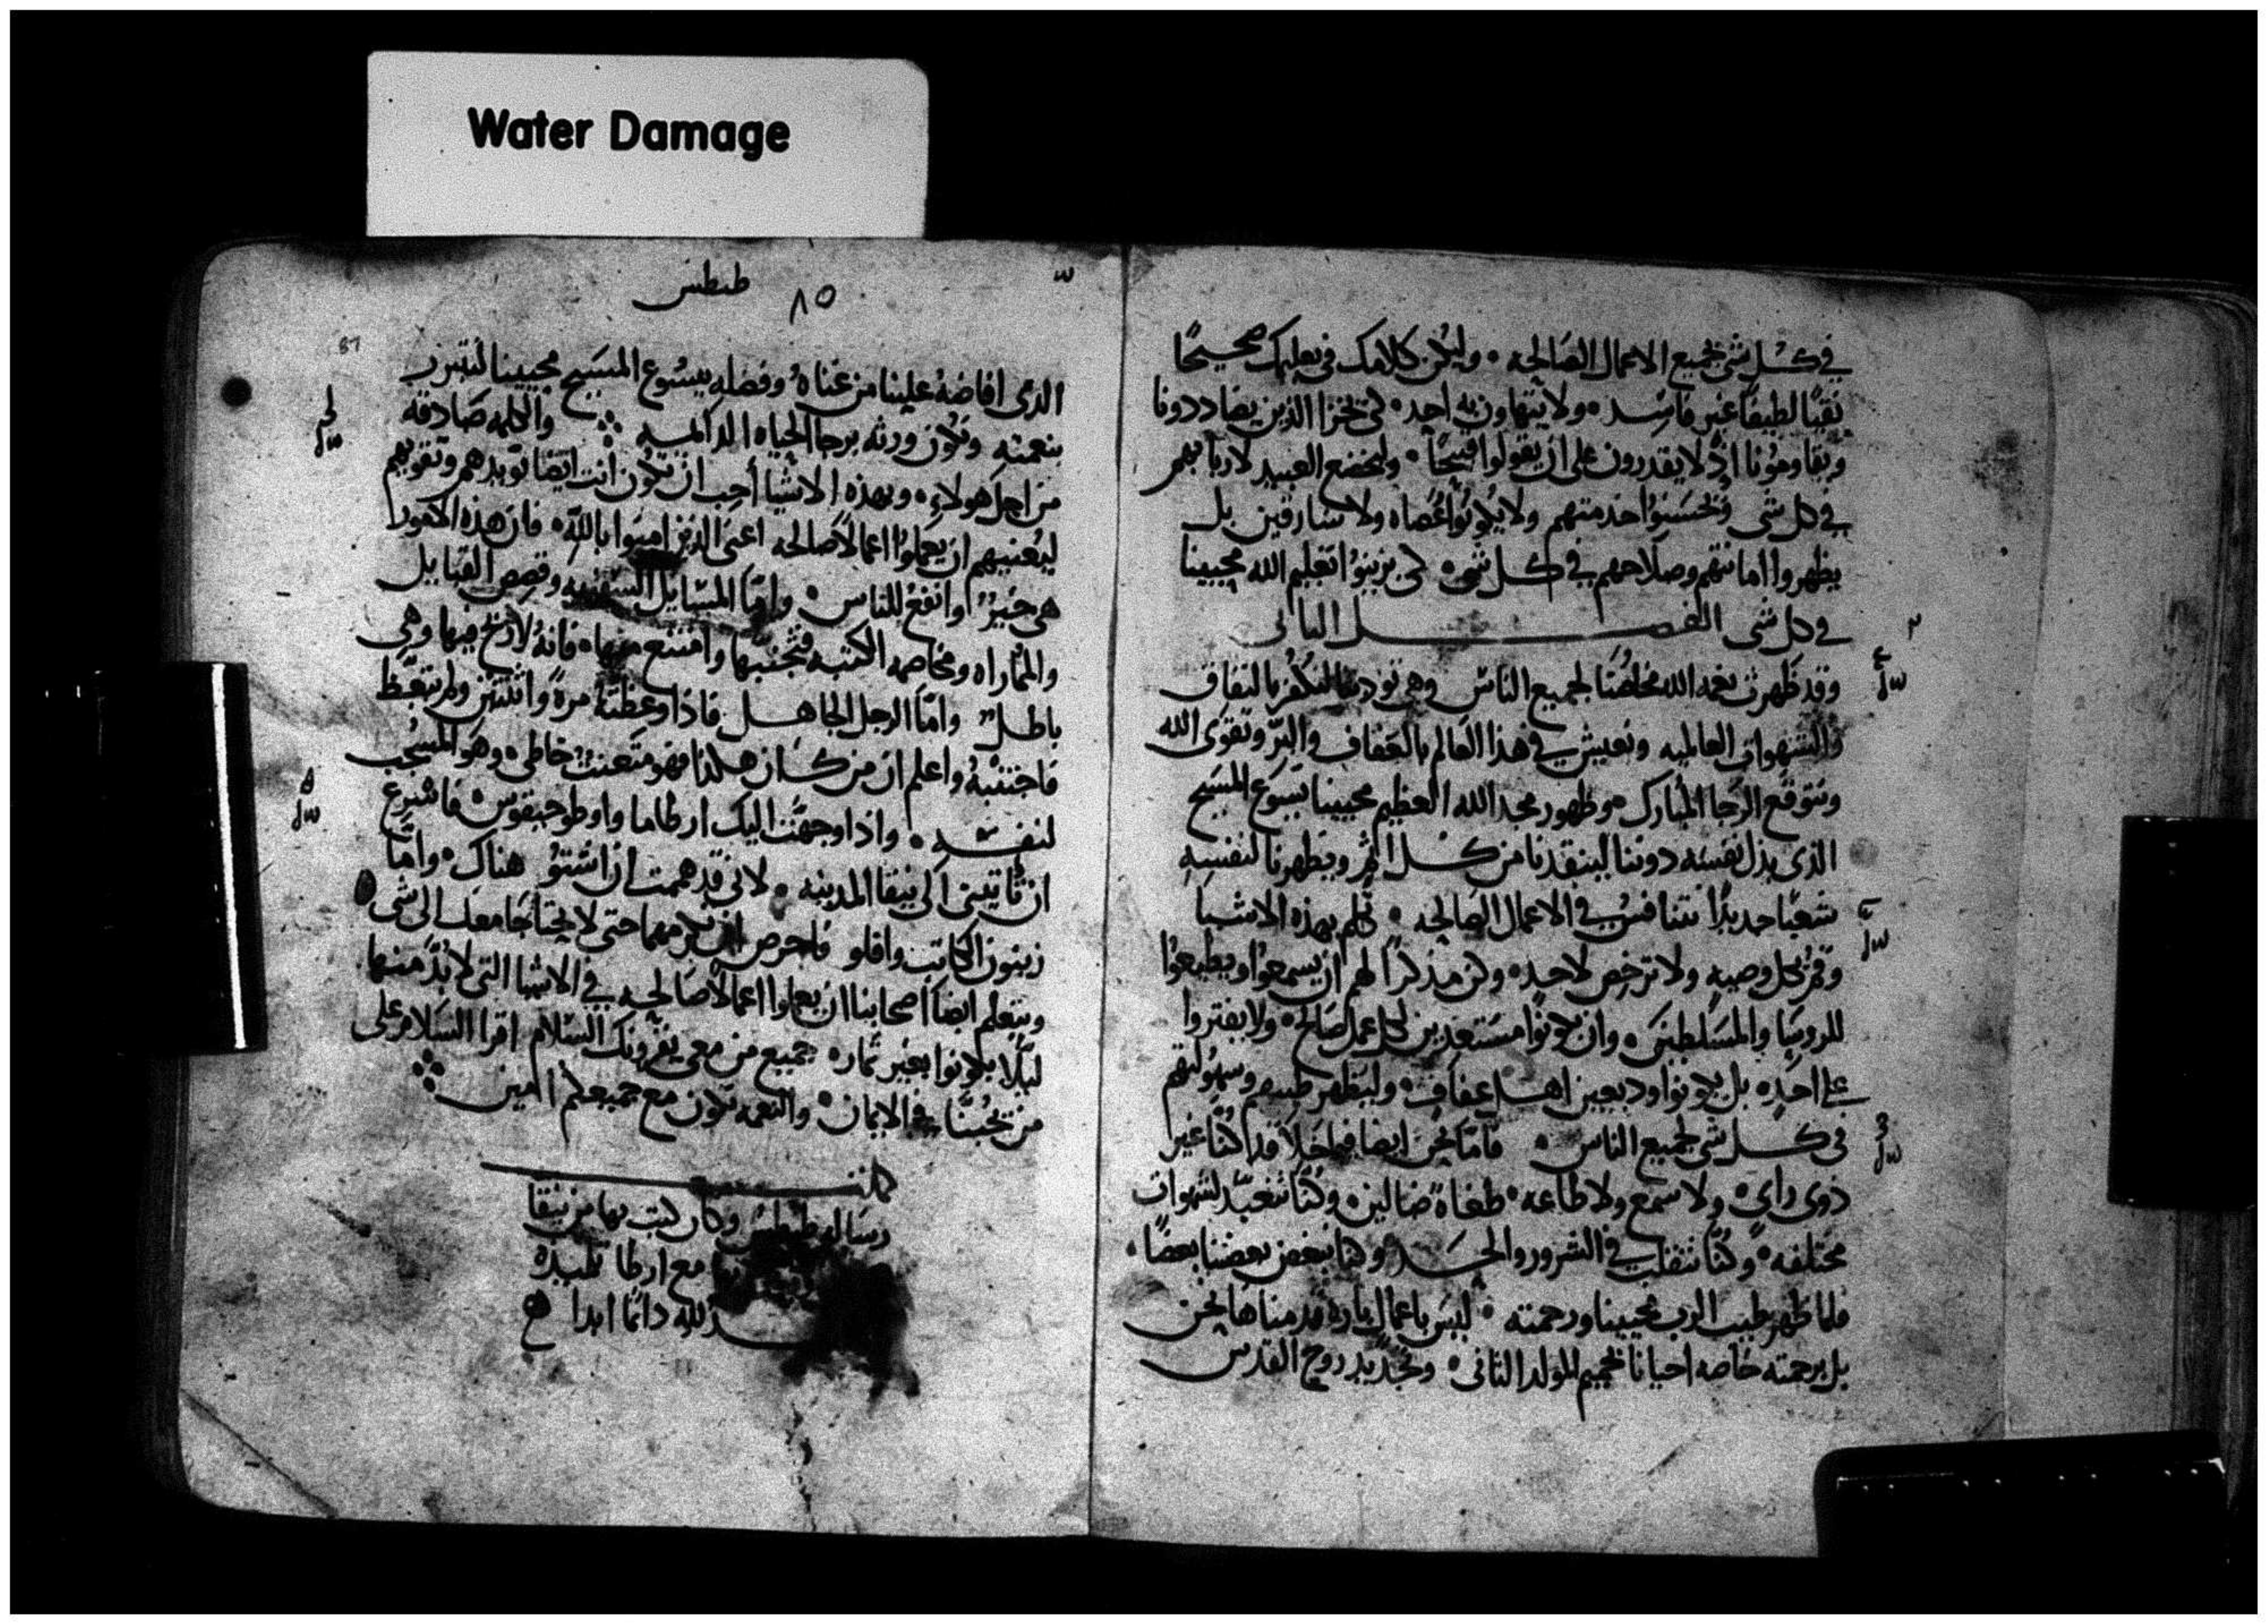 Water Damage
في كل شي بجميع الاعمال الصالحه ۰ وليكن كلامك في تعليمك صحيحًا
نقيًا لطيفًا غير فاسد ۰ ولا يتهاون به احد ۰ لكي يخزا الذين يضاددونا
ويقاومونا اذ لا يقدرون على ان يقولوا قبيحًا ۰ وليخضع العبيد لاربابهم
في كل شي ويحسنوا خدمتهم ولا يكونوا عُصاه ولا سارقين بل
يظهروا امانتهم وصلاحهم في كل شي ۰ لكي يزينوا تعليم الله محيينا
في كل شي الفصل الثالي
۲
وقد ظهرت نعمه الله مخلصنا لجميع الناس وهي تودبنا لنكفر بالنفاق
والشهوات العالميه ونعيش في هذا العالم بالعفاف والبرّ وتقوى الله
ونتوقع الرجا المبارك ۰ وظهور مجد الله العظيم محيينا يسوع المسيح
الذي بذل نفسه دوننا لينقذنا من كل اثم ويطهرنا لنفسه
شعبًا جديدًا نتنافس في الاعمال الصالحه ۰ تكلم بهذه الاشيا
ومُر بكل وصيه ولا ترخص لاحد ۰ وكن مذكرًا لهم ان يسمعوا ويطيعوا
للروسا والمسلطين ۰ وان يكونوا مستعدين لكل عمل صالح ۰ ولا يفتروا
على احد ۰ بل يكونوا وديعين اهل عفاف ۰ وليظهر طيبهم وسهولتهم
في كل شي لجميع الناس ۰ فامّا نحن ايضا فيما خلا قد كنّا غير
ذوي راي ۰ ولا سمع ولا طاعه ۰ طغاة ضالين ۰ وكنّا نتعبّد لشهوات
مختلفه ۰ وكنّا نتقلب في الشرور والحسد وكنا يبغض بعضنا بعضًا ۰
فلما ظهر طيب الرب محيينا ورحمته ۰ ليس باعمال باره قدمناها نحن
بل برحمته خاصه احيانا بحميم المولد الثاني ۰ وتجديد روح القدس
۳
۸٥ طيطس
87
الذي افاضهُ علينا من غناهُ وفضله بيسوع المسيح محيينا لنتبرر
بنعمته ونكون ورثه برجا الحياه الدايمه والكلمه صادقه
من اجل هولاءِ ۰ وبهذه الاشيا أحِب ان تكون انت ايضًا توبدهم وتقويهم
ليُعنيهم ان يعملوا اعمالًا صالحه اعني الذين امنوا بالله ۰ فان هذه الامور
هي خيرٌ وانفعُ للناس ۰ وامّا المسايل السفيهه وقصص القبايل
والمُماراه ومخاصمه الكتبه فتجنبها وامتنع منها ۰ فانهُ لا ربح فيها وهي
باطلٌ وامّا الرجل الجاهل فاذا وعظتهُ مرةً واثنتين ولم يتعّظ
فاجتنبهُ واعلم ان من كان هكذا فهو متعنتٌ خاطي ۰ وهو المشجب
لنفسه ۰ واذا وجهّت اليك ارطاما واوطوخيقوس ۰ فاشرع
ان تأتيني الى نيقا المدينه ۰ لاني قد هممت ان اشتوُ هناك ۰ وامّا
زينون الكاتب وافلو فاحرص ان تكرمهما حتى لا يحتاجا معك الى شي ۰
ويتعلم ايضًا اصحابنا ان يعملوا اعمالًا صالحه في الاشيا التي لا بُدّ منها
ليلّا يكونوا بغير ثمار ۰ جميع من معي يقرونك السلام اقرا السلام على
من يحُبنّا في الايمان ۰ والنعمه تكون مع جميعكم امين
كملت
رساله طيطس وكان كتب بها من نيقا
مع ارطا تلميذه
لله دائمًا ابدا